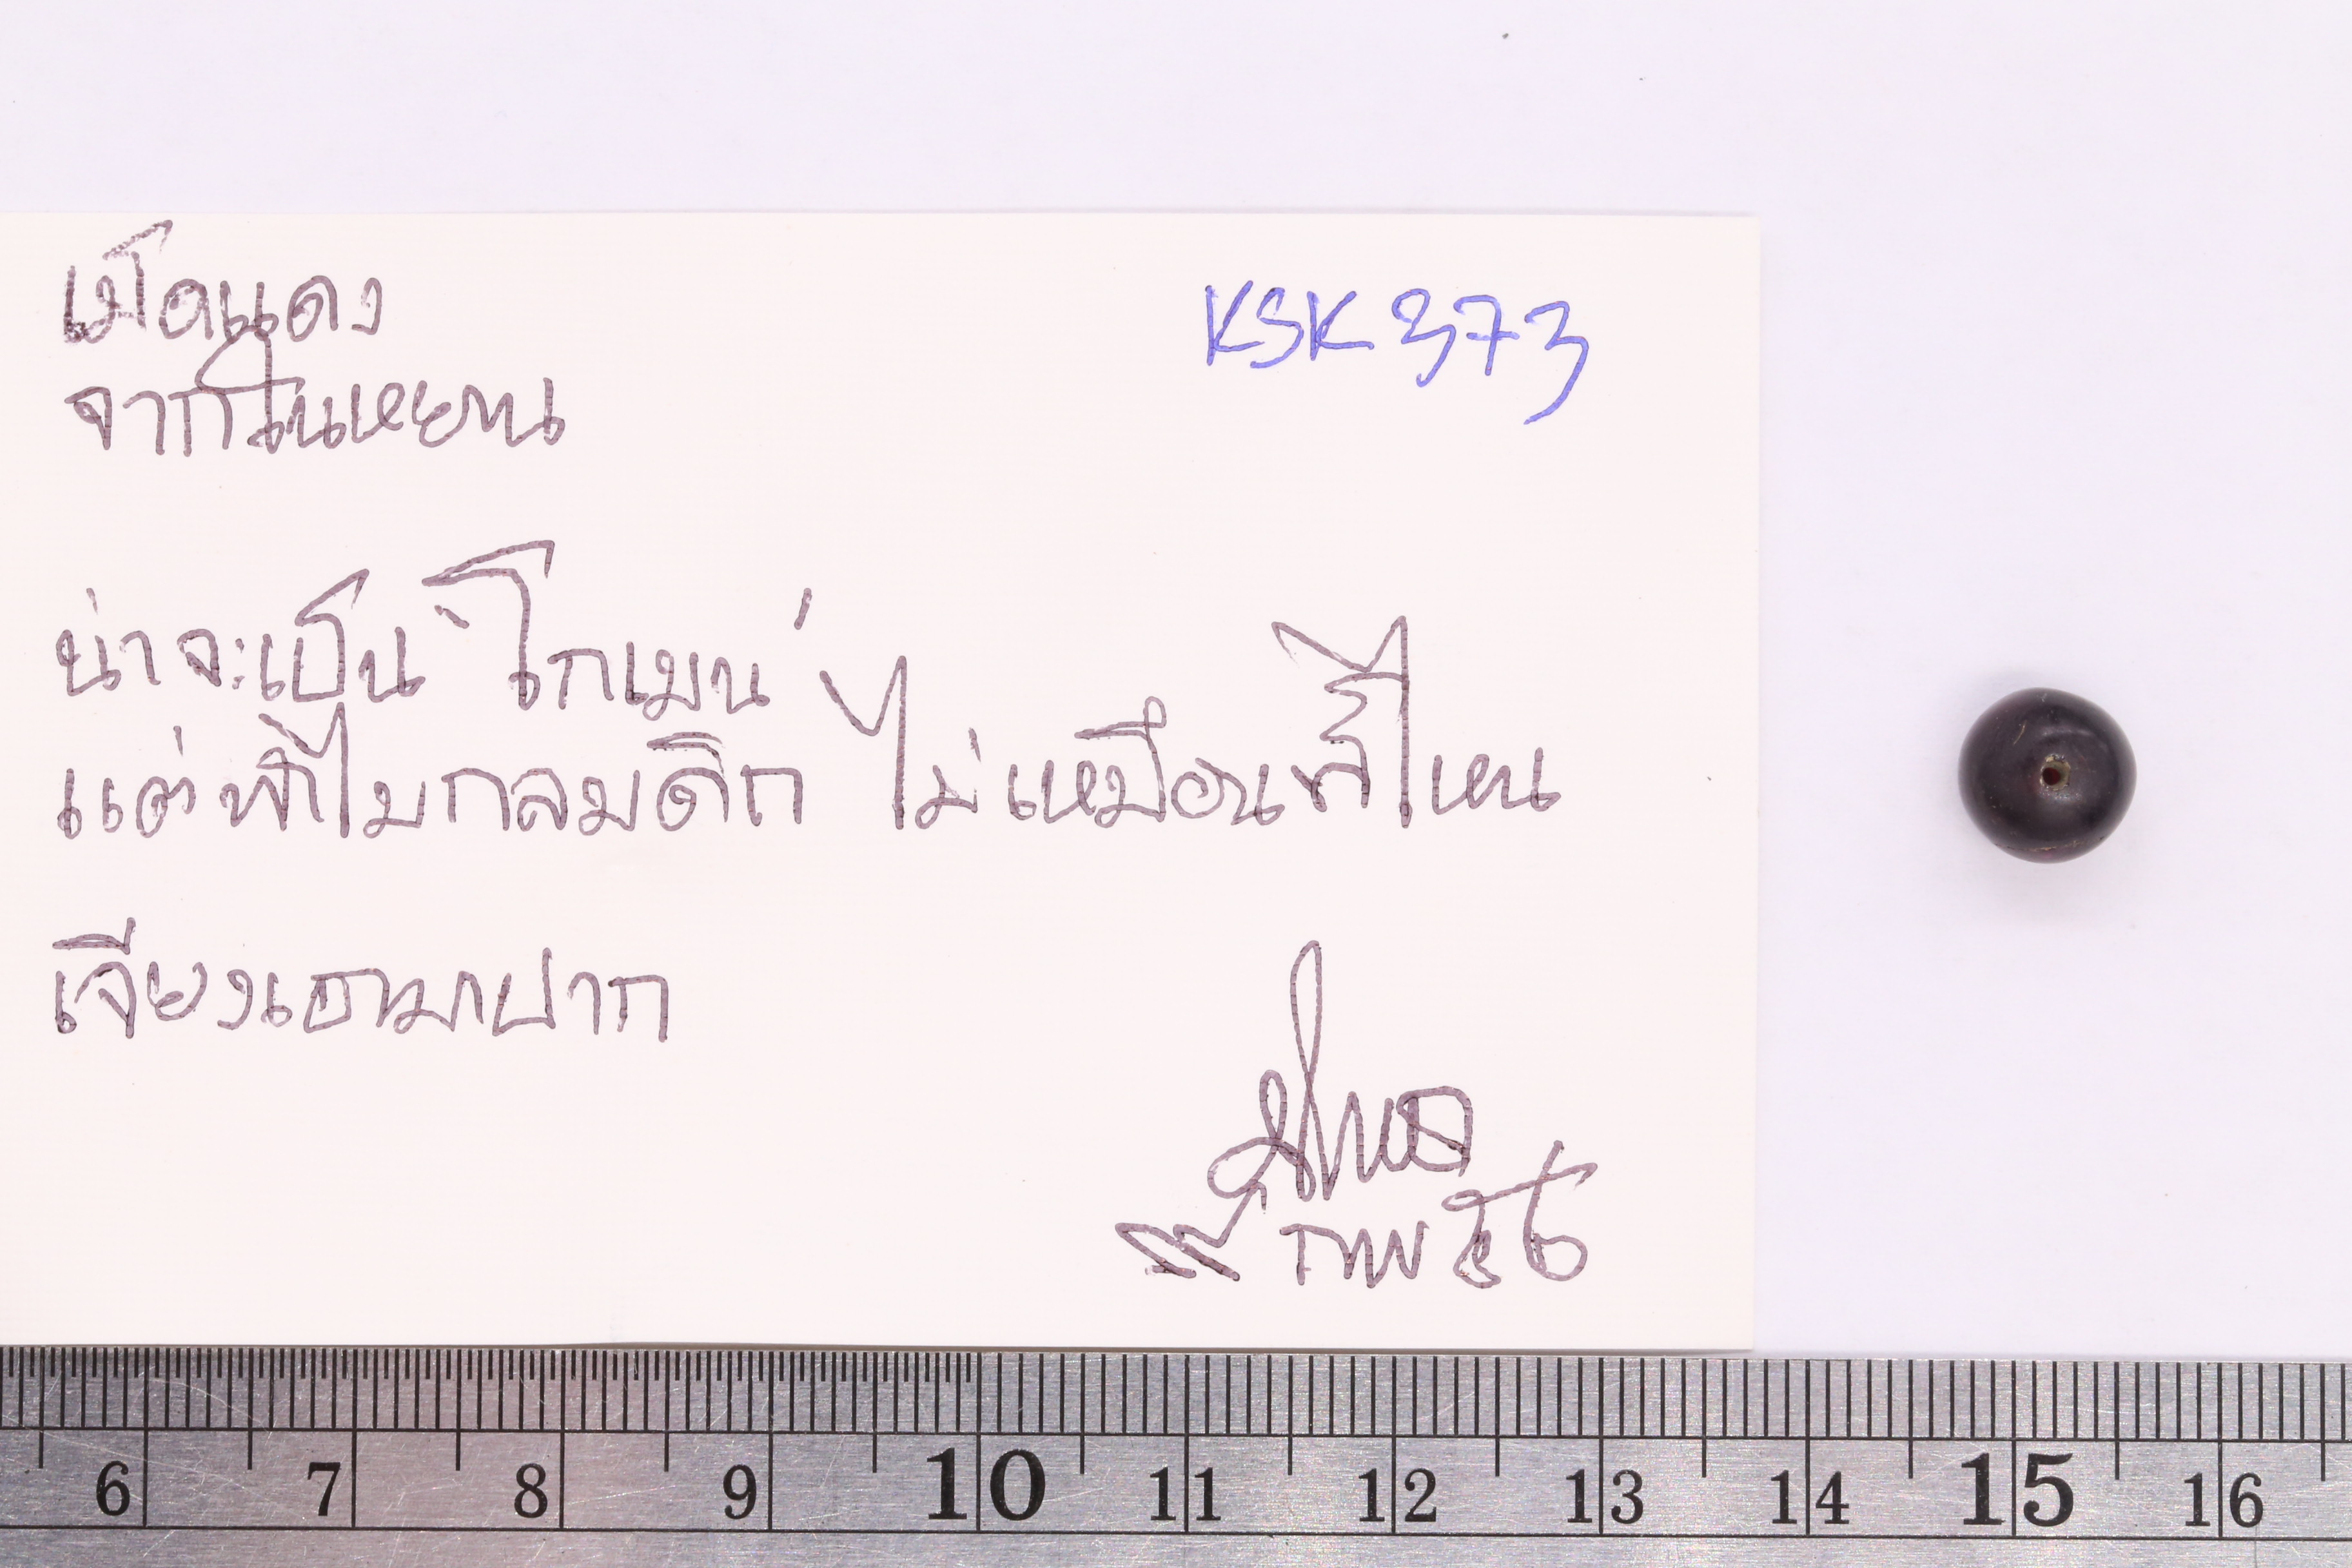 เม็ดแดง
จากในหยาน
KSK 373
น่าจะเป็น "โกเมน"
แต่ทำไมกลมดิก ไม่เหมือนที่ไหน
เจียงเอามาฝาก
6 7 8 9 10 11 12 13 14 15 16